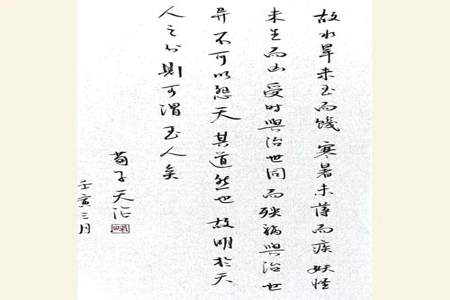 故水旱未至而饑寒暑未薄而疾妖怪
未生而凶受时與治世同而殃禍與治世
异不可以怨天其道然也故明於天
人之分則可謂至人矣
荀子天论
壬寅三月